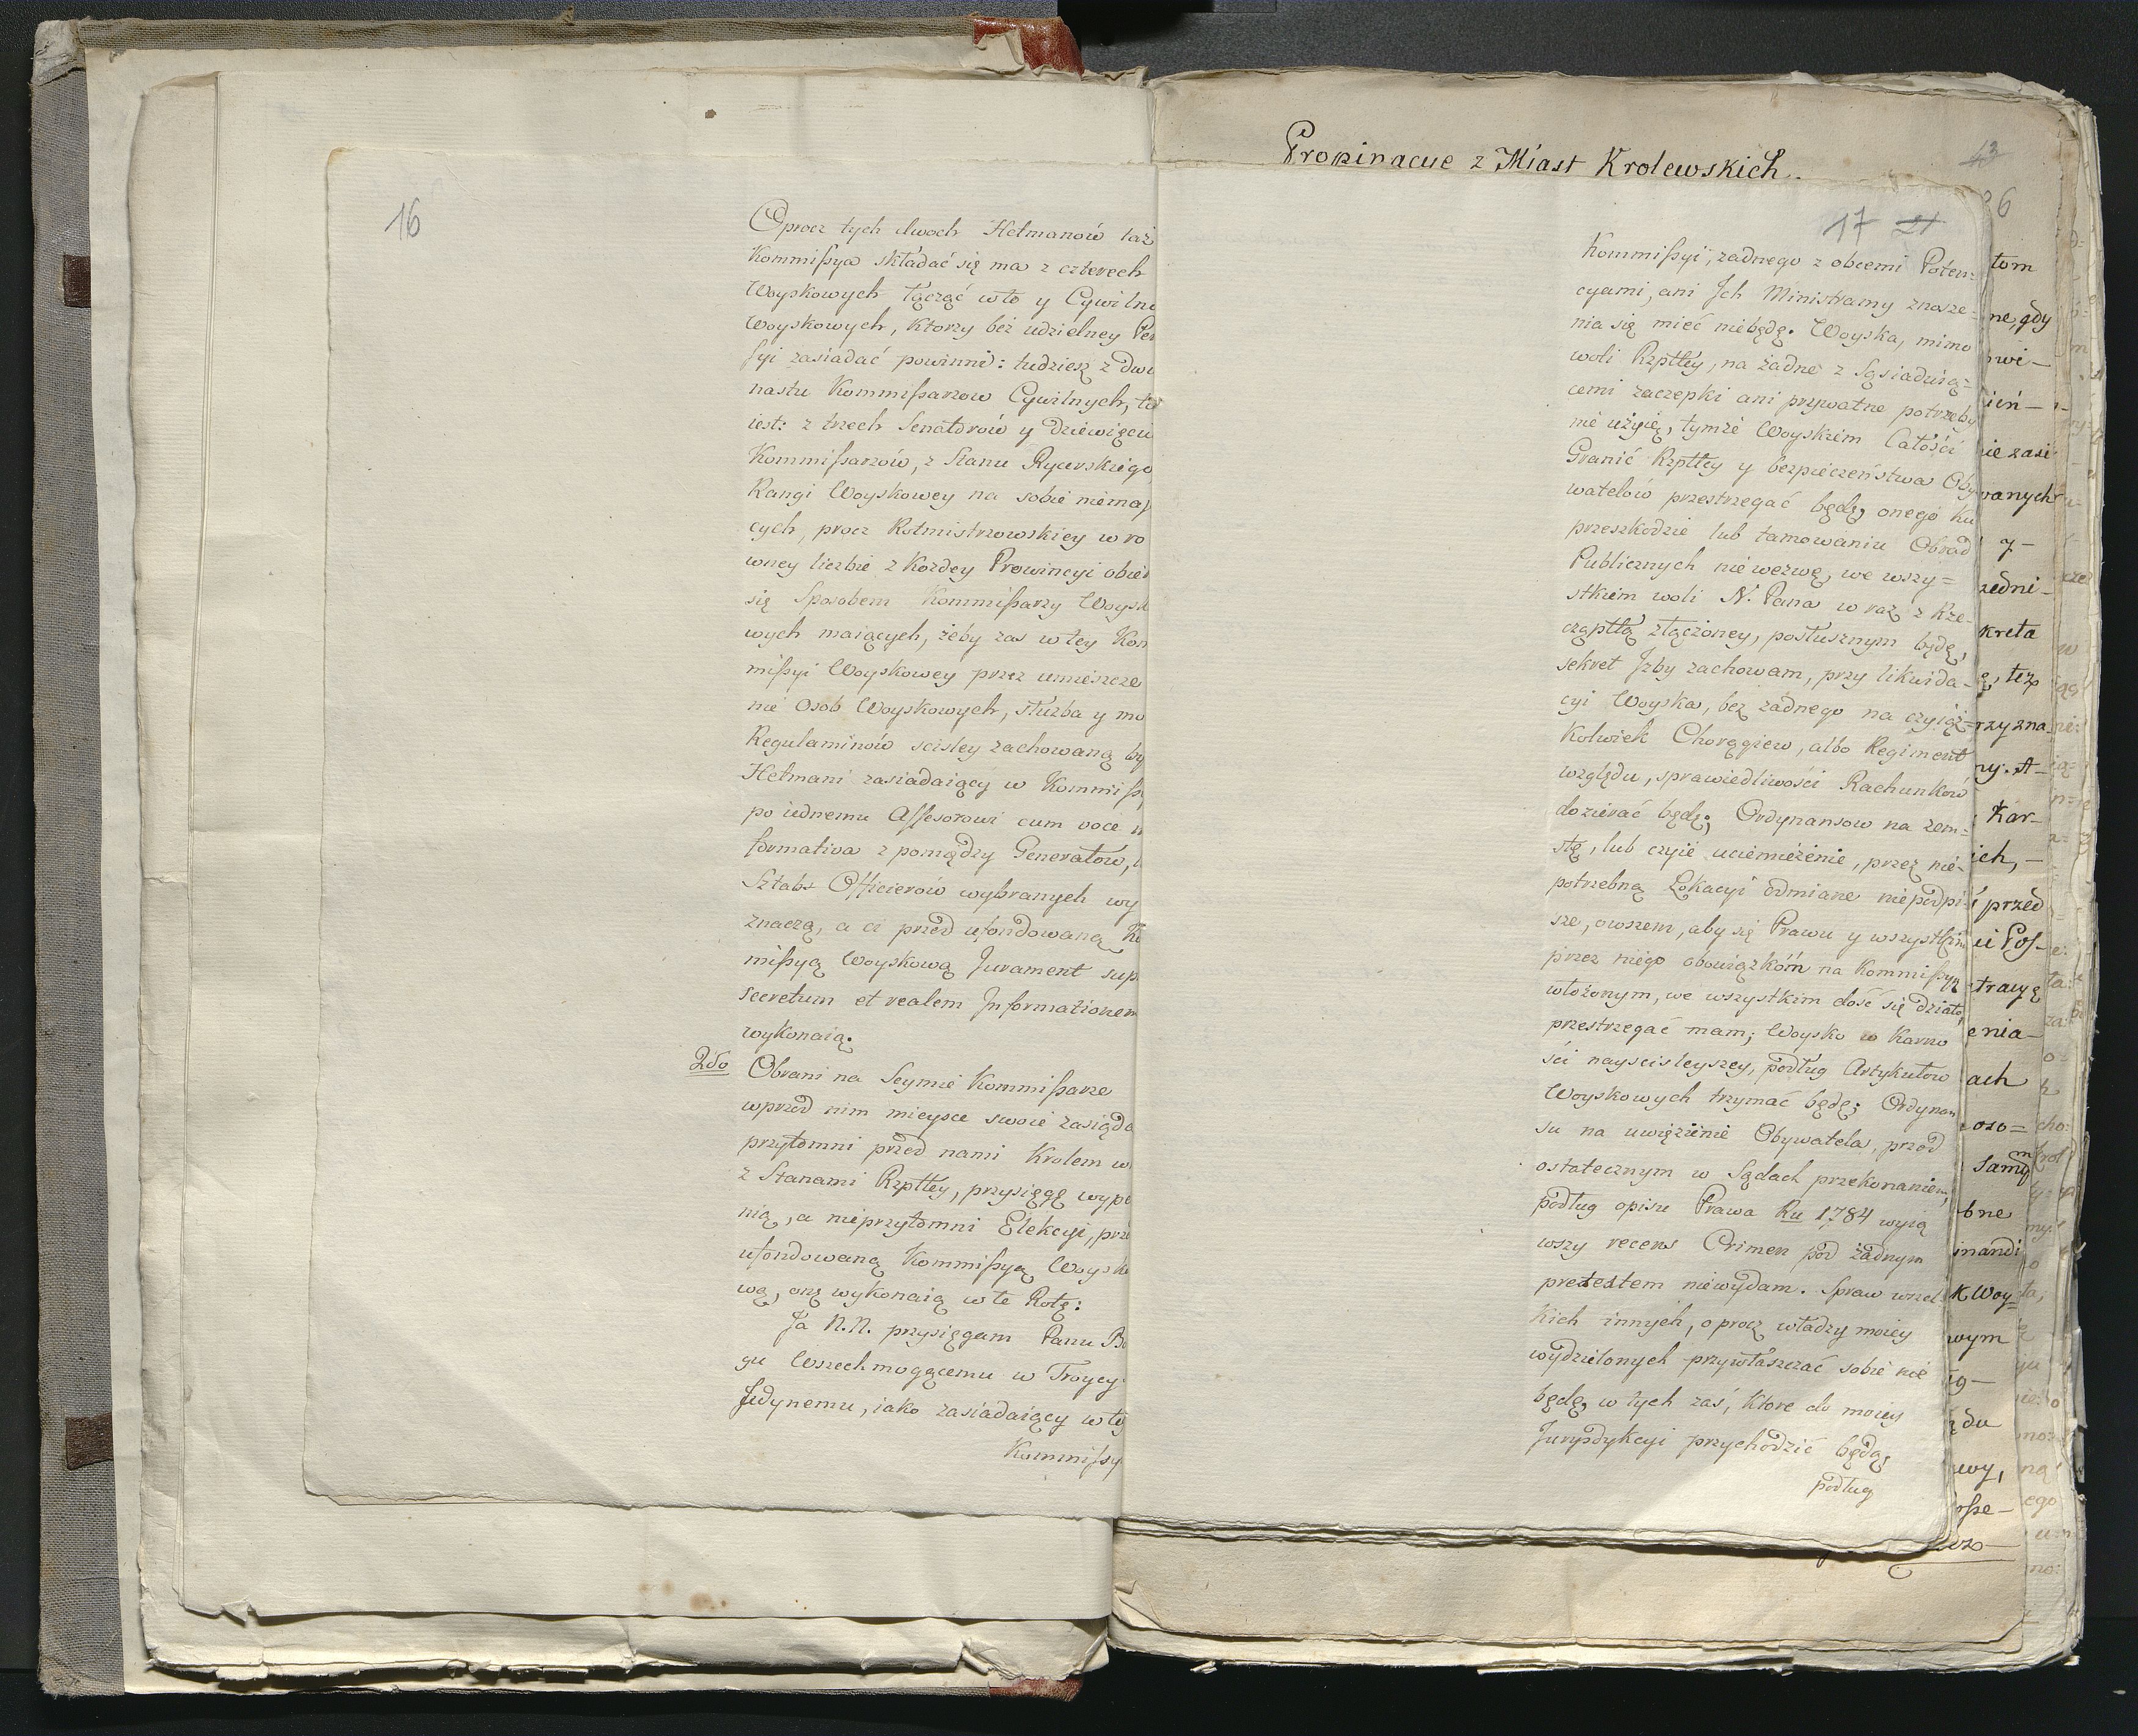 16
Oprocz tych dwoch Hetmanów taż
Kommißya składać się ma z czterech
Woyskowych łącząc w to y Cywilne
Woyskowych, ktorzy bez udzielney Pen
syi zasiadać powinni: tudziesz z dwu
nastu Kommißarzow Cywilnych, to
iest: z trzech Senatorów y dziewięciu
Kommißarzów, z Stanu Rycerskiego
Rangi Woyskowey na sobie niemaj
cych, procz Rotmistrzowskiey w ro
wney liczbie z kozdey Prowincyi obier
się Sposobem Kommißarzy Woysk
wych maiących, żeby zas w tey Kom
mißyi Woyskowey przez umieszcze
nie Osob Woyskowych, służba y mo
Regulaminów scisley zachowaną by
Hetmani zasiadaiący w Kommiß
po iednemu Assesorowi cum voce in
formativa z pomądzy Generałow, i
Sztabs Officierów wybranych wy
znaczą, a ci przed ufondowaną Ko
mißyą Woyskową Jurament sup
secretum et realem Informationem
wykonaią.
2do Obrani na Seymie Kommißarze
wprzod nim mieysce swoie zasiąda
przytomni przed nami Krolem w
z Stanami Rzptłey, przysięgę wype
nią, a nieprzytomni Elekcyi, prze
ufondowaną Kommißyą Woysko
wą, onę wykonaią w te Rotę:
Ja N.N. przysięgam Panu Bo
gu Wszechmogącemu w Troycy
Jedynemu, iako zasiadaiący w tey
Kommißy
Propinacye z Miast Krolewskich.
43
17 21
Kommißyi, żadnego z obcemi Poten=
cyami, ani Ich Ministramy znosze=
nia się mieć niebędę. Woyska, mimo
woli Rzptłey, na żadne z Sąsiaduią=
cemi zaczepki ani prywatne potrzeby
nie użyię, tymże Woyskiem Całości
Granic Rzptłey y bezpieczeństwa Oby
watelów przestrzegać będę, onego ku
przeszkodzie lub tamowaniu Obrad
Publicznych nie wezwę, we wszy=
stkiem woli N. Pana w raz z Rze=
cząptłą złączoney, posłusznym będę,
sekret Izby zachowam, przy likwida=
cyi Woyska, bez żadnego na czyiąż=
kolwiek Chorągiew, albo Regiment
względu, sprawiedliwości Rachunków
dozierać będę; Ordynansow na zem=
stę, lub czyie uciemiężenie, przez nie=
potrzebną Lokacyi odmiane niepodpi=
sze, owszem, aby się Prawu y wszystkim
przez niego obowiązkóm na Kommißyą
włożonym, we wszystkim dość się działo,
przestrzegać mam; Woysko w Karno
ści nayscisleyszey, podług Artykułow
Woyskowych trzymać będę; Ordynan
su na uwięzienie Obywatela, przed
ostatecznym w Sądach przekonaniem,
podług opisu Prawa Ru 1784 wyią
wszy recens Crimen pod żadnym
pretextem niewydam. Spraw wszel
kich innych, oprocz władzy moiey
wydzielonych przywłaszczać sobie nie
będę, w tych zaś, ktore do moiey
Jurysdykcyi przychodzić będą,
podług